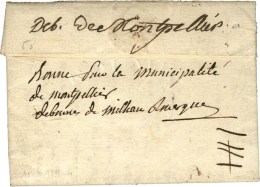 Deb. de Montpellier
bonne pour la municipalité
de montpellier
debource de milhau Rouergue